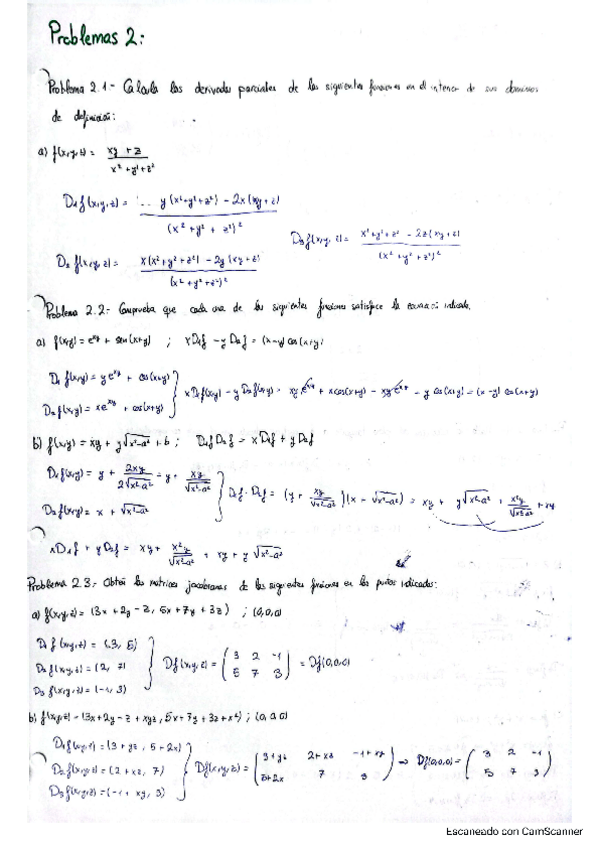 Problemas 2:
Problema 2.1.- Calcula las derivadas parciales de las siguientes funciones en el interior de sus dominios
de definición:
a) f(x,y,z) = (xy + z) / (x² + y² + z²)
D₁f(x,y,z) = (y(x²+y²+z²) - 2x(xy+z)) / (x² + y² + z²)²
D₃f(x,y,z) = (x²+y²+z² - 2z(xy+z)) / (x² + y² + z²)²
D₂f(x,y,z) = (x(x²+y²+z²) - 2y(xy+z)) / (x²+y²+z²)²
Problema 2.2.- Comprueba que cada una de las siguientes funciones satisface la ecuación indicada.
a) f(x,y) = e^xy + sen(x+y) ; xD₁f - yD₂f = (x-y)cos(x+y)
D₁f(x,y) = ye^xy + cos(x+y)
D₂f(x,y) = xe^xy + cos(x+y)
xD₁f(x,y) - yD₂f(x,y) = xye^xy + xcos(x+y) - xye^xy - ycos(x+y) = (x-y)cos(x+y)
b) f(x,y) = xy + y√(x²-a²) + b ; D₁f D₂f = xD₁f + yD₂f
D₁f(x,y) = y + 2xy / 2√(x²-a²) = y + xy / √(x²-a²)
D₂f(x,y) = x + √(x²-a²)
D₁f · D₂f = (y + xy / √(x²-a²))(x - √(x²-a²)) = xy + y√(x²-a²) + x²y / √(x²-a²) + xy
xD₁f + yD₂f = xy + x²y / √(x²-a²) + xy + y√(x²-a²)
Problema 2.3.- Obtén las matrices jacobianas de las siguientes funciones en los puntos indicados:
a) f(x,y,z) = (3x + 2y - z, 5x + 7y + 3z) ; (0,0,0)
D₁f(x,y,z) = (3, 5)
D₂f(x,y,z) = (2, 7)
D₃f(x,y,z) = (-1, 3)
Df(x,y,z) = (3 2 -1
5 7 3) = Df(0,0,0)
b) f(x,y,z) = (3x+2y - z + xyz, 5x + 7y + 3z + x²) ; (0,0,0)
D₁f(x,y,z) = (3 + yz, 5 + 2x)
D₂f(x,y,z) = (2 + xz, 7)
D₃f(x,y,z) = (-1 + xy, 3)
Df(x,y,z) = (3+yz 2+xz -1+xy
5+2x 7 3) ⇒ Df(0,0,0) = (3 2 -1
5 7 3)
Escaneado con CamScanner